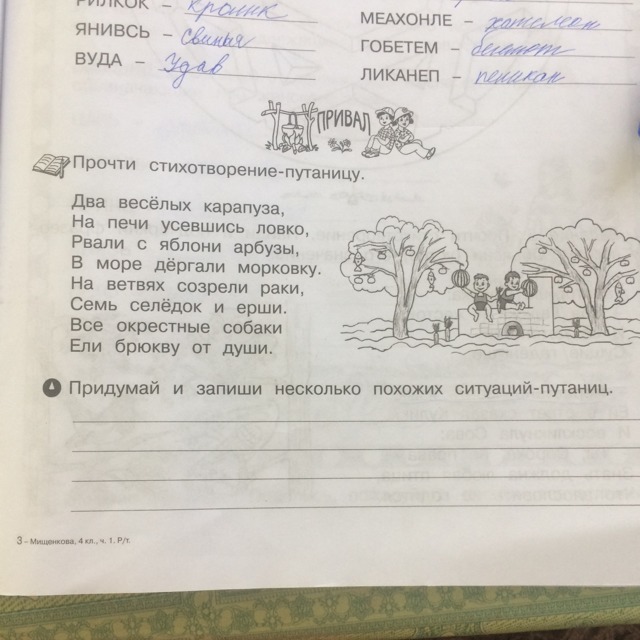 РИЛКОК – кролик
ЯНИВСЬ – свинья
ВУДА – Удав
МЕАХОНЛЕ – хамелеон
ГОБЕТЕМ – бегемот
ЛИКАНЕП – пеликан
ПРИВАЛ
Прочти стихотворение-путаницу.
Два весёлых карапуза,
На печи усевшись ловко,
Рвали с яблони арбузы,
В море дёргали морковку.
На ветвях созрели раки,
Семь селёдок и ерши.
Все окрестные собаки
Ели брюкву от души.
Придумай и запиши несколько похожих ситуаций-путаниц.
3 – Мищенкова, 4 кл., ч. 1. Р/т.